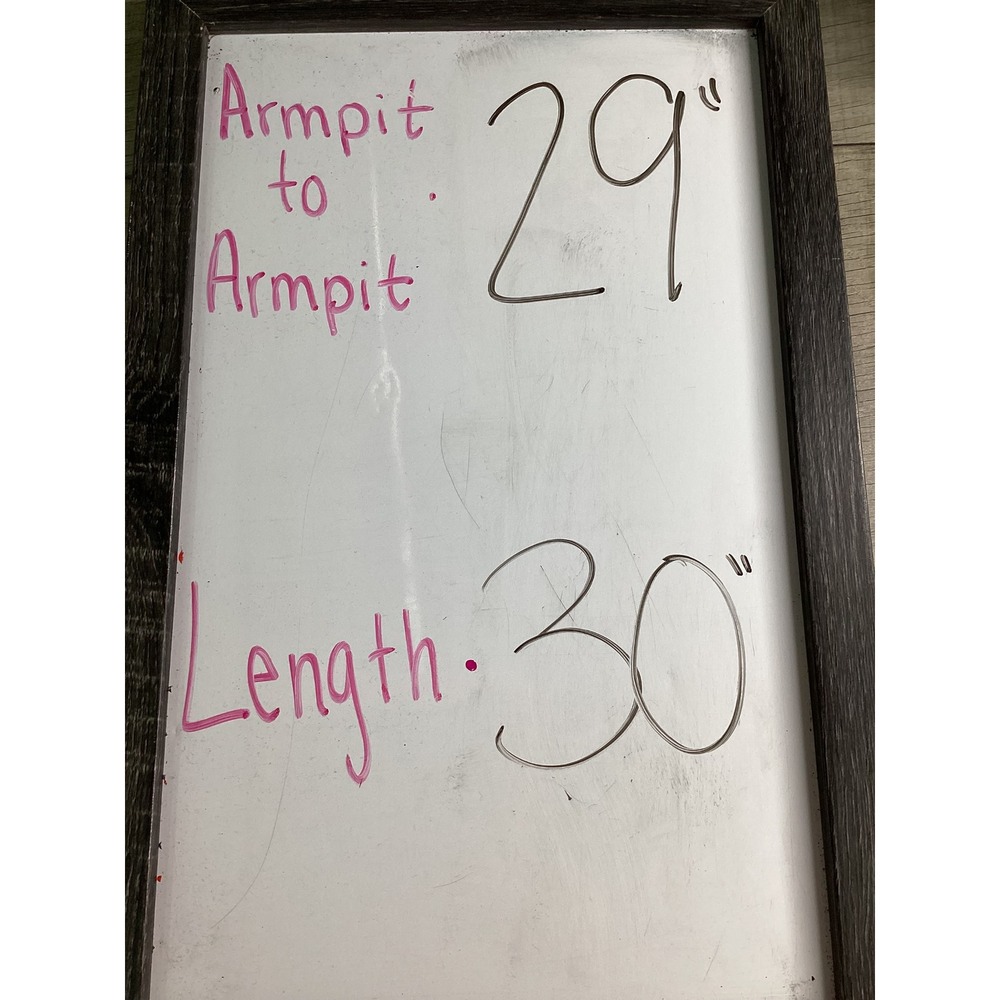 Armpit
to
Armpit
29"
Length
30"